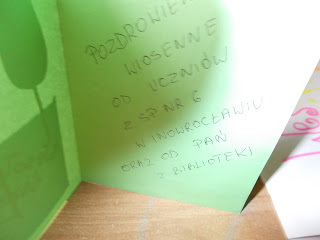 POZDROWIENIA
WIOSENNE
OD UCZNIÓW
Z SP NR 6
W INOWROCŁAWIU
ORAZ OD PAŃ
Z BIBLIOTEKI